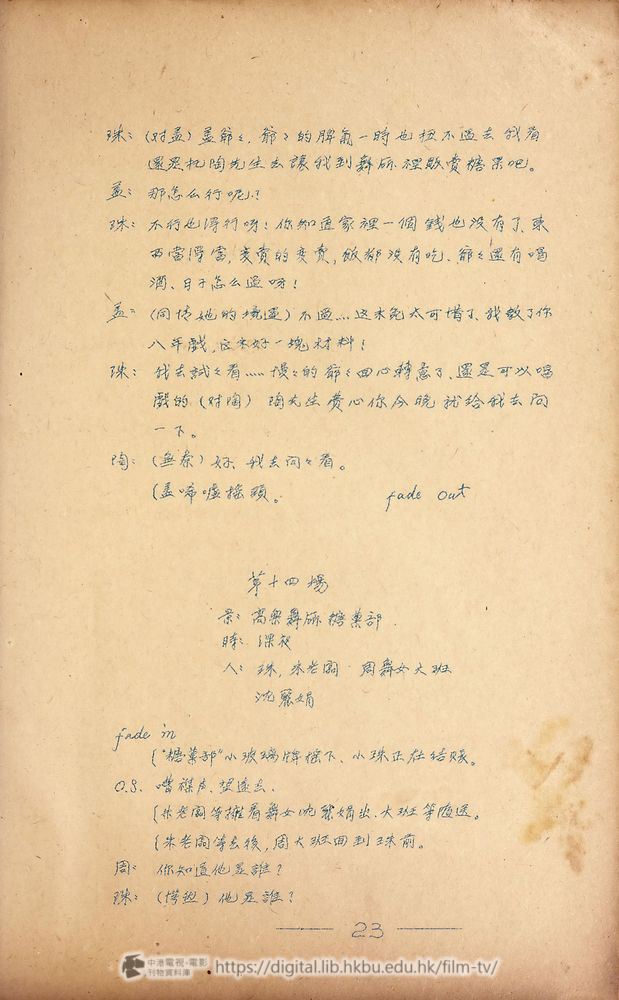 珠：(对孟) 孟爺々，爺々的脾氣一時也扭不过去 我看
還是托陶先生去讓我到舞厛裡販賣糖果吧。
孟：那怎么行呢！
珠：不行也得行呀！你知道家裡一個錢也没有了，東
西當得當，变賣的变賣，飯都没有吃、爺々還有喝
酒、日子怎么过呀！
孟：(同情她的境遇) 不过...这未免太可惜了、我教了你
八年戲，这末好一塊材料！
珠：我去試々看.....慢々的爺々回心轉意了、還是可以唱
戲的 (对陶) 陶先生費心你今晚就给我去问
一下。
陶：(無奈) 好、我去问々看。
(孟唏嘘摇頭。 fade out
第十四場
景：高樂舞厛糖菓部
時：深夜
人：珠，朱老闆・周舞女大班
沈麗娟
fade in
("糖菓部"小玻璃牌摇下、小珠正在结賬。
O.S. 嘈襍声、望遠去、
(朱老闆等擁着舞女沈麗娟出、大班等隨送。
(朱老闆等去後，周大班回到珠前。
周：你知道他是誰？
珠：(愕然) 他是誰？
23
中港電視・電影
刊物資料庫
https://digital.lib.hkbu.edu.hk/film-tv/